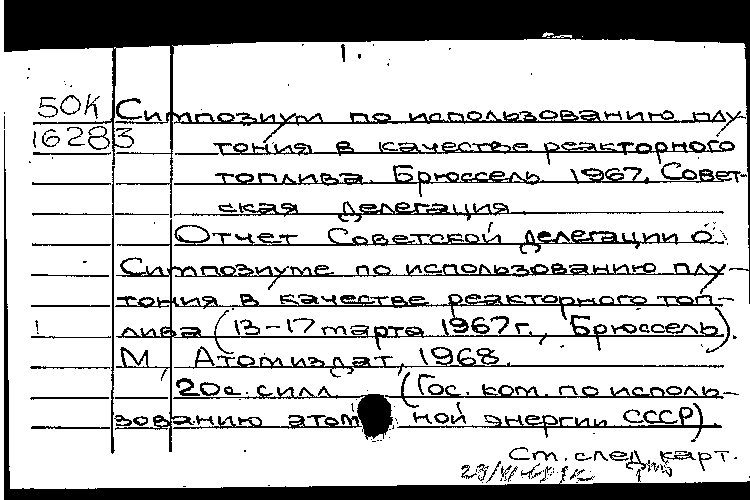 1.
50К Симпозиум по использованию плу-
16283 тония в качестве реакторного
топлива. Брюссель. 1967. Совет-
ская делегация.
Отчет Советской делегации о
Симпозиуме по использованию плу-
тония в качестве реакторного топ-
1 лива (13-17 марта 1967 г., Брюссель).
М., Атомиздат, 1968.
20с. силл. (Гос. ком. по исполь-
зованию атомной энергии СССР).
Ст. след. карт.